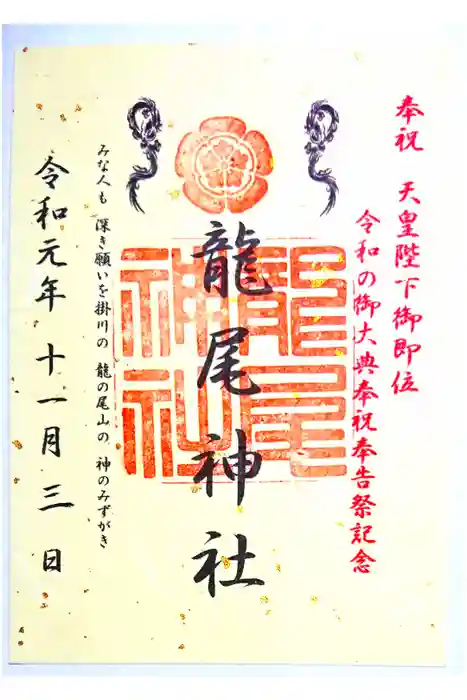 奉祝 天皇陛下御即位
令和の御大典奉祝奉告祭記念
龍尾神社
龍尾神社
みな人も 深き願いを掛川の 龍の尾山の、神のみずがき
令和元年十一月三日